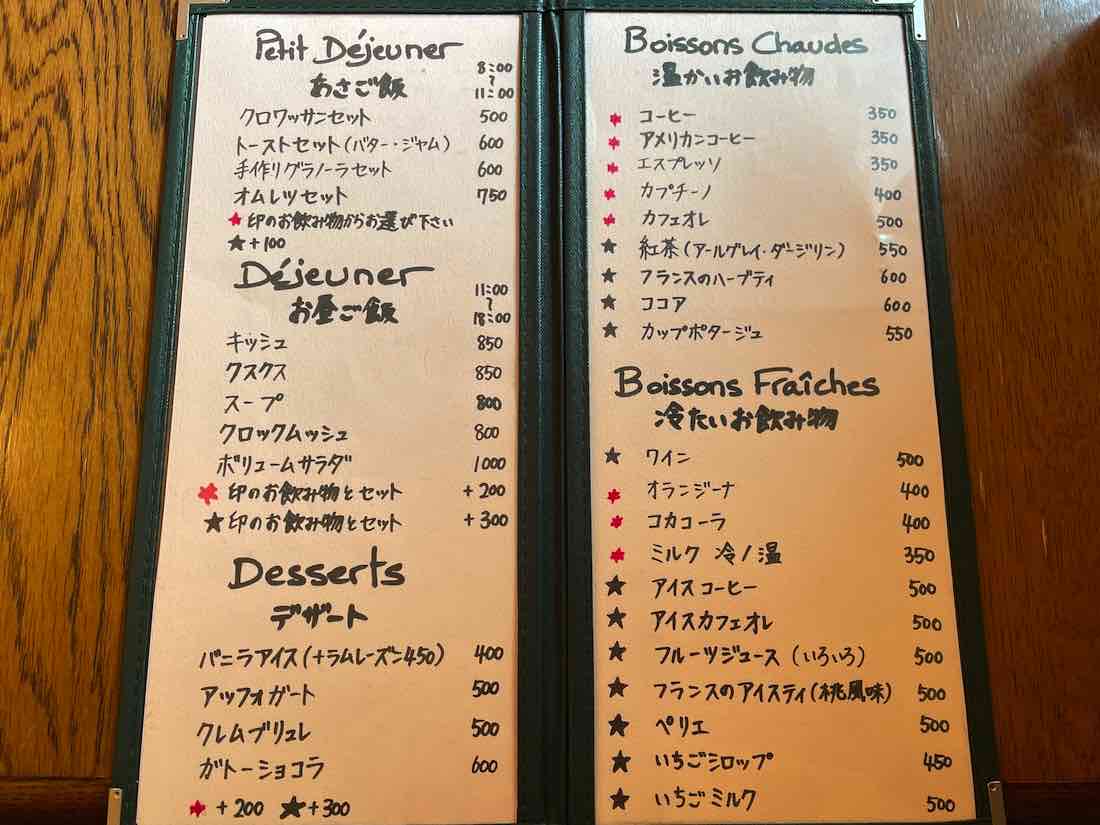 Petit Déjeuner
あさご飯 8:00~11:00
クロワッサンセット 500
トーストセット(バター・ジャム) 600
手作りグラノーラセット 600
オムレツセット 750
★印のお飲み物からお選び下さい
★+100
Déjeuner
お昼ご飯 11:00~18:00
キッシュ 850
クスクス 850
スープ 800
クロックムッシュ 800
ボリュームサラダ 1000
★印のお飲み物とセット +200
★印のお飲み物とセット +300
Desserts
デザート
バニラアイス(+ラムレーズン450) 400
アッフォガート 500
クレムブリュレ 500
ガトーショコラ 600
★+200 ★+300
Boissons Chaudes
温かいお飲み物
★ コーヒー 350
★ アメリカンコーヒー 350
★ エスプレッソ 350
★ カプチーノ 400
★ カフェオレ 500
★ 紅茶(アールグレイ・ダージリン) 550
★ フランスのハーブティ 600
★ ココア 600
★ カップポタージュ 550
Boissons Fraîches
冷たいお飲み物
★ ワイン 500
★ オランジーナ 400
★ コカコーラ 400
★ ミルク 冷/温 350
★ アイスコーヒー 500
★ アイスカフェオレ 500
★ フルーツジュース(いろいろ) 500
★ フランスのアイスティ(桃風味) 500
★ ペリエ 500
★ いちごシロップ 450
★ いちごミルク 500